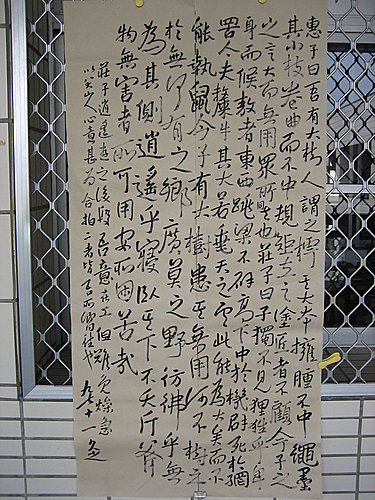 惠子曰吾有大樹人謂之樗其大本擁腫不中繩墨
其小枝卷曲而不中規矩立之塗匠者不顧今子之
言大而無用眾所去也莊子曰子獨不見狸狌乎卑
身而候敖者東西跳梁不辟高下中於機辟死於網
罟今夫斄牛其大若垂天之雲此能為大矣而不
能執鼠今子有大樹患其無用何不樹之
於無何有之鄉廣莫之野彷彿乎無
為其側逍遙乎寢臥其下不夭斤斧
物無害者所可用安所困苦哉
莊子逍遙遊之後段吾意在工但難免燥急
心意甚為合拍